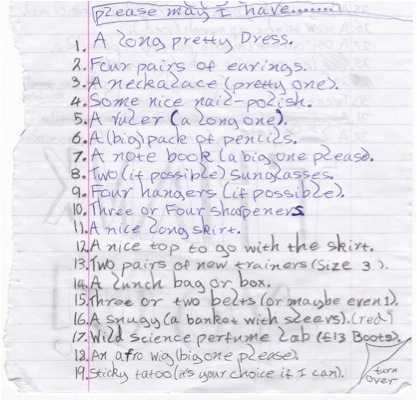 please may I have.......!
1. A long pretty Dress.
2. Four pairs of earings.
3. A neckalace (pretty one).
4. Some nice nail-polish.
5. A ruler (a long one).
6. A (big) pack of pencils.
7. A note book (a big one please).
8. Two (if possible) sunglasses.
9. Four hangers (if possible).
10. Three or Four sharpeners
11. A nice long skirt.
12. A nice top to go with the skirt.
13. Two pairs of new trainers (Size 3).
14. A lunch bag or box.
15. Three or two belts (or maybe even 1).
16. A snugy (a banket with sleevs). (red)
17. Wild Science perfume Lab (£13 Boots).
18. An afro wig (big one please).
19. Sticky tatoo (it's your choice if I can).
turn
over